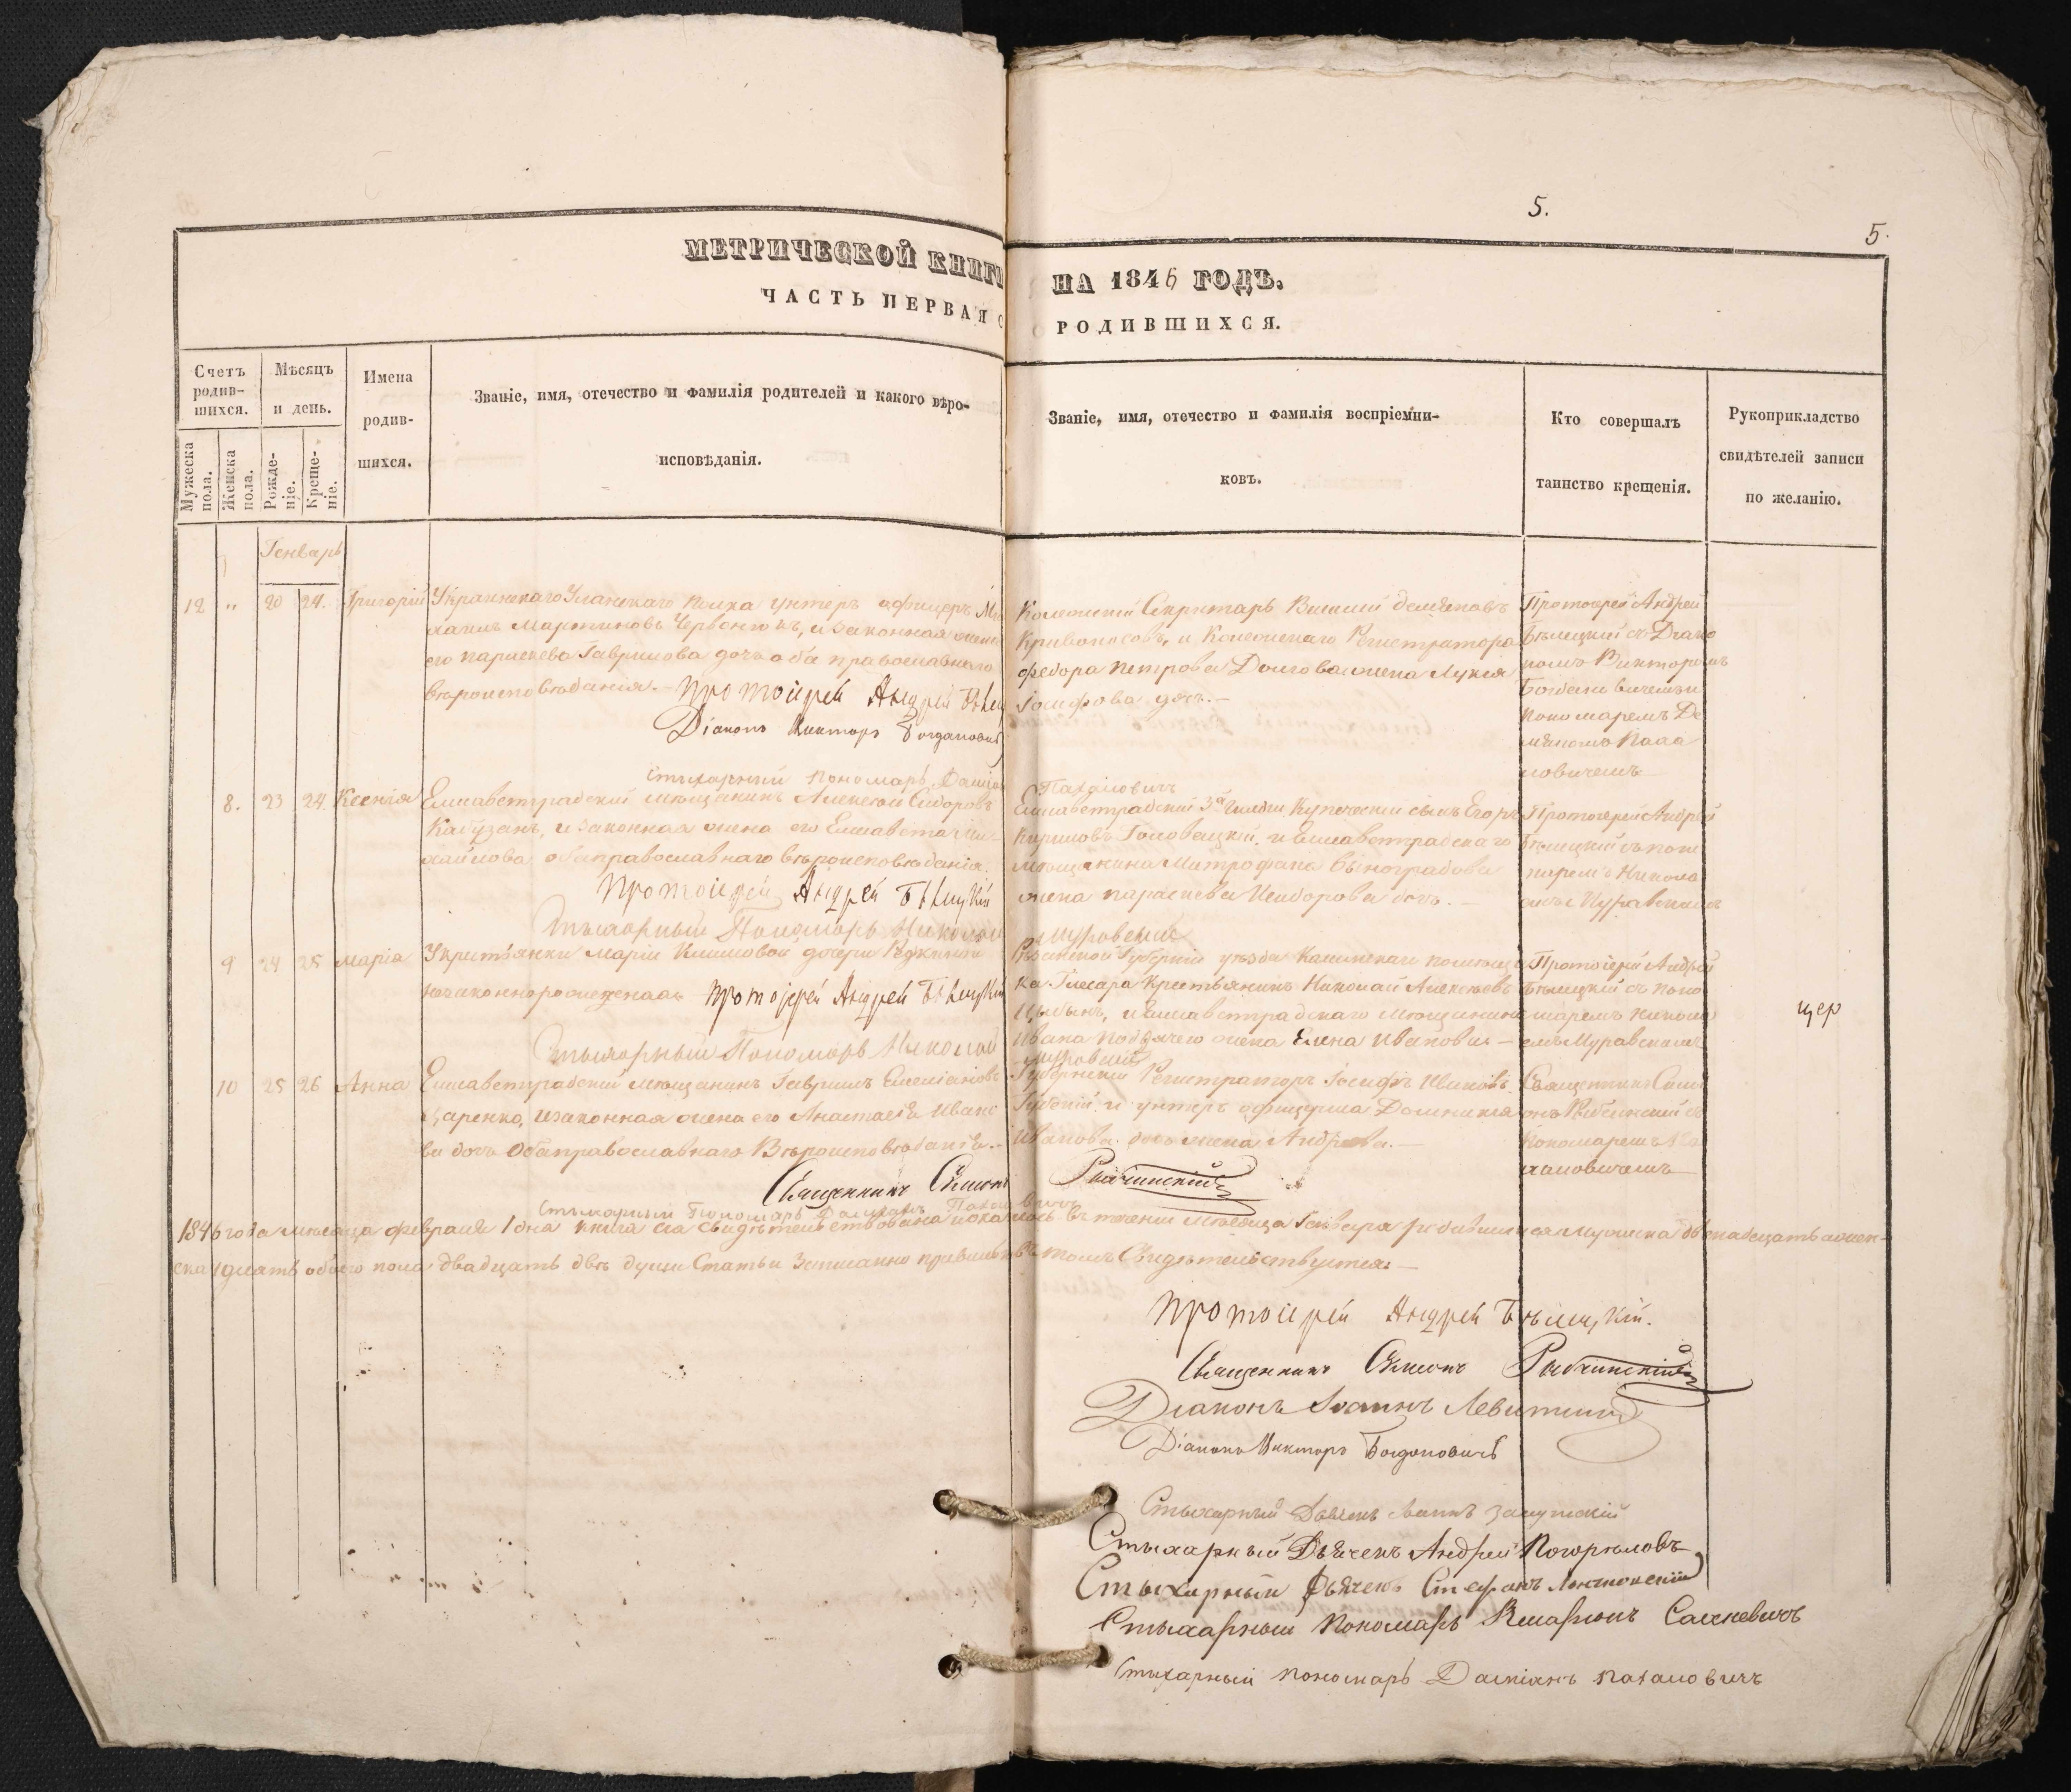 5.
5.
МЕТРИЧЕСКОЙ КНИГИ НА 1846 ГОДЪ.
ЧАСТЬ ПЕРВАЯ О РОДИВШИХСЯ.
Счетъ родив-шихся.
Мужеска пола.
Женска пола.
Мѣсяцъ и день.
Рожде-ніе.
Креще-ніе.
Имена родив-шихся.
Званіе, имя, отечество и фамилія родителей и какого вѣро-
исповѣданія.
Званіе, имя, отечество и фамилія воспріемни-
ковъ.
Кто совершалъ
таинство крещенія.
Рукоприкладство
свидѣтелей записи
по желанію.
Генварь
12 " 20 24. Григорій
Украинскаго Уланскаго полка унтеръ офицеръ Ми
хаилъ Мартиновъ Червонюкъ, и законная жена
его параскева Гаврилова дочь оба православнаго
вѣроисповѣданія.—
Протоіерей Андрей Бѣлиц
Діаконъ Викторъ Богдановичъ
Стихарный пономарь Даміан
Пахаловичъ
Колежскій Секритарь Василій
Кривоносовъ, и Колежскаго Регистратора
федора петрова Долгова жена Лукія
Іосифова дочь.—
Протоіерей Андрей
Бѣлицкій съ Діако
номъ Викторомъ
Богдановичемъ и
пономаремъ Да
міаномъ Паха
ловичемъ
8. 23 24 Ксенія
Елисаветградскій мѣщанинъ Алексѣй Сидоровъ
и законная жена его Елисавета Ми
хайлова оба православнаго вѣроисповѣданія.
Протоіерей Андрей Бѣлицкій
Стихарный Пономарь Николай
Муравскій
Елисаветградскій 3й Гильдіи Купеческій сынъ Егоръ
Кириловъ Головацкій, и Елисаветградскаго
мѣщанина Митрофана Виноградова
жена параскева Исидорова дочь.—
Протоіерей Андрей
Бѣлицкій съ поно
маремъ Никола
емъ Муравскимъ
9 24 25 Марія
У крестьянки Маріи Климовой дочери
незаконнорожденная
Протоіерей Андрей Бѣлицкій
Стихарный Пономарь Николай
Муравскій
Губерніи уѣзда помѣщи
ка Глесара Крестьянинъ Николай Алексѣевъ
Цыбинъ, и Елисаветградскаго Мѣщанина
Ивана жена Елена Иванова—
Протоіерей Андрей
Бѣлицкій съ поно
маремъ Никола
емъ Муравскимъ
цер
10 25 26 Анна
Елисаветградскій Мѣщанинъ Гавриилъ Емеліановъ
Царенко, и законная жена его Анастасія Ивано
ва дочь Оба православнаго Вѣроисповѣданія.—
Священникъ Симонъ Рыбчинскій
Стихарный Пономарь Даміанъ Пахаловичъ
Губернскій Регистраторъ Іосифъ Ивановъ
Губскій, и унтеръ офицерша Домникія
Иванова дочь жена Андреева.—
Священникъ Симо
нъ Рыбчинскій съ
Пономаремъ Па
халовичемъ
1846 года мѣсяца февраля 1 дня книга сія свидѣтельствована и оказалось въ теченіи Мѣсяца Генваря родившихся Мужеска двенадцать женс-
ска десять обоего пола двадцать двѣ души Статьи Записанно правильно въ томъ Свидѣтельствуемъ.—
Протоіерей Андрей Бѣлицкій.
Священникъ Симонъ Рыбчинскій
Діаконъ Іоаннъ Левитскій
Діаконъ Викторъ Богдановичъ
Стихарный Дьячекъ Іоаннъ
Стихарный Дьячекъ Андрей Погорѣловъ
Стихарный Дьячекъ Стефанъ
Стихарный Пономарь Иларіонъ Салкевичъ
Стихарный пономарь Даміанъ Пахаловичъ